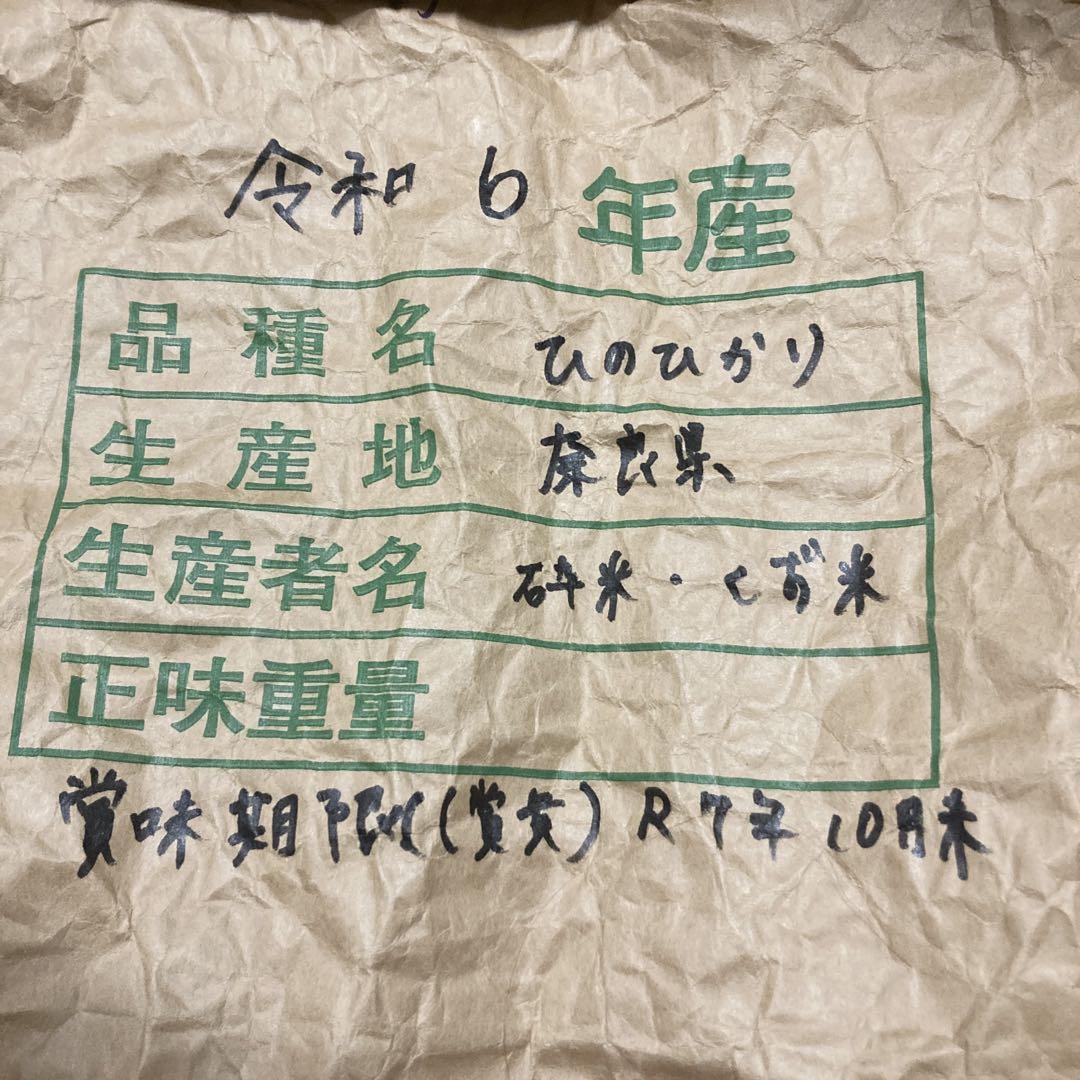 令和 6 年産
品種名 ひのひかり
生産地 奈良県
生産者名 砕米・くず米
正味重量
賞味期限() R7年 10月末